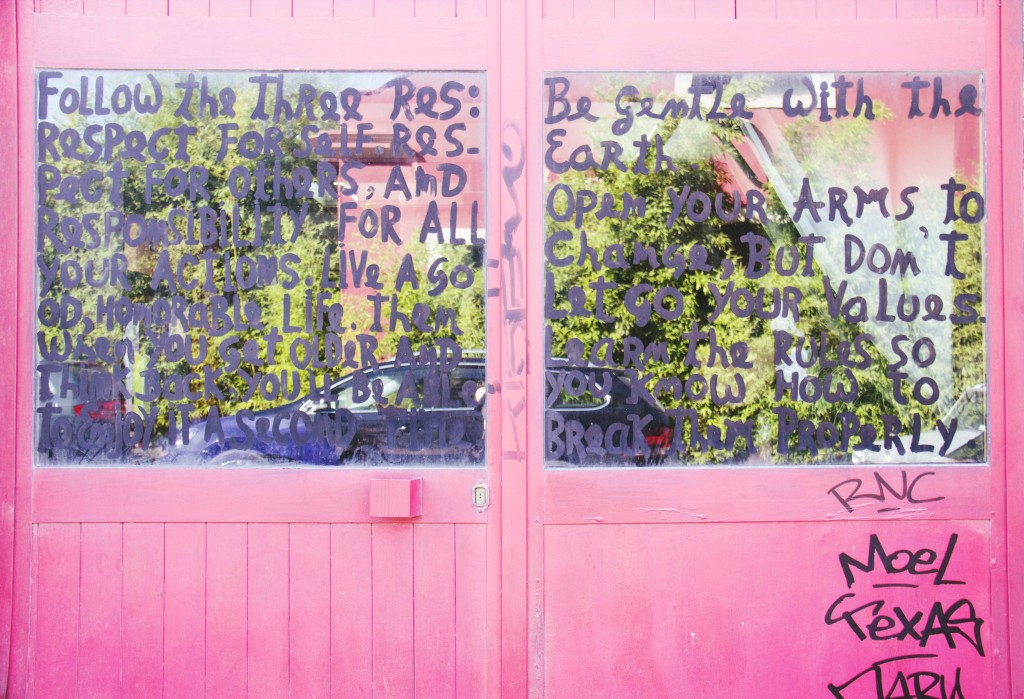 Follow the Three Res:
Respect For self. Res-
pect For Others, And
Responsibility For All
your Actions Live A Go
od, Honorable Life. Then
When you get older And
Think Back you'll Be Able
To enjoy it A second time
Be gentle with the
Earth.
Open your Arms to
Change, But Don't
Let Go your Values.
Learn the Rules so
you Know How to
Break Them Properly
RNC
Moel
Texas